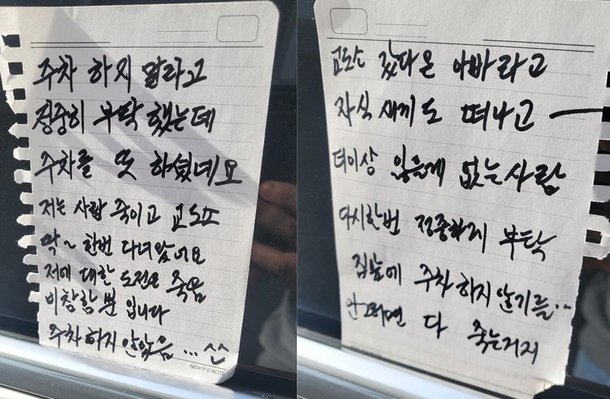 주차 하지 말라고
정중히 부탁 했는데
주차를 또 하셨네요
저는 사람 죽이고 교도소
막~ 한번 다녀왔어요
저에 대한 도전은 죽음
비참함 뿐 입니다
주차 하지 않았음 ...
NEW P.D NOTE
교도소 갔다온 아빠라고
자식 새끼도 떠나고
더이상 잃을게 없는 사람
다시한번 정중하게 부탁
집앞에 주차 하지 않기를..
안그러면 다 죽는거지